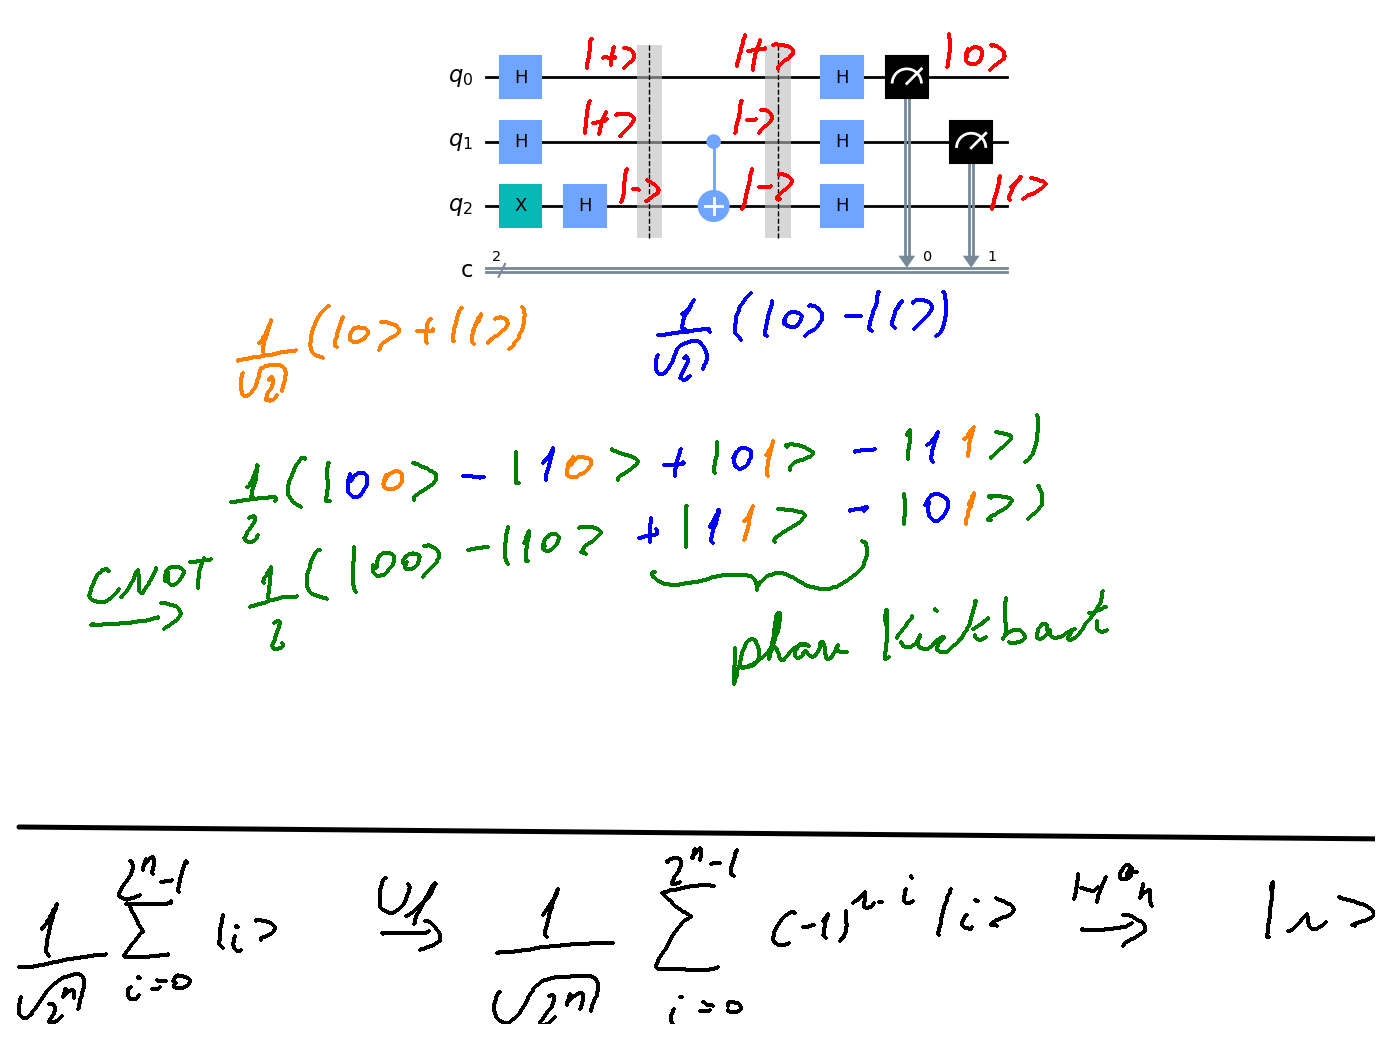 q0 H |+> |+> H |0>
q1 H |+> |-> H
q2 X H |-> |-> H |1>
c 2 0 1
1/√2 (|0> + |1>) 1/√2 (|0> - |1>)
1/2 (|00> - |10> + |01> - |11>)
CNOT → 1/2 (|00> - |10> + |11> - |01>)
phase kickback
1/√2^n ∑_{i=0}^{2^n-1} |i> U_f → 1/√2^n ∑_{i=0}^{2^n-1} (-1)^{s·i} |i> H^{⊗n} → |s>